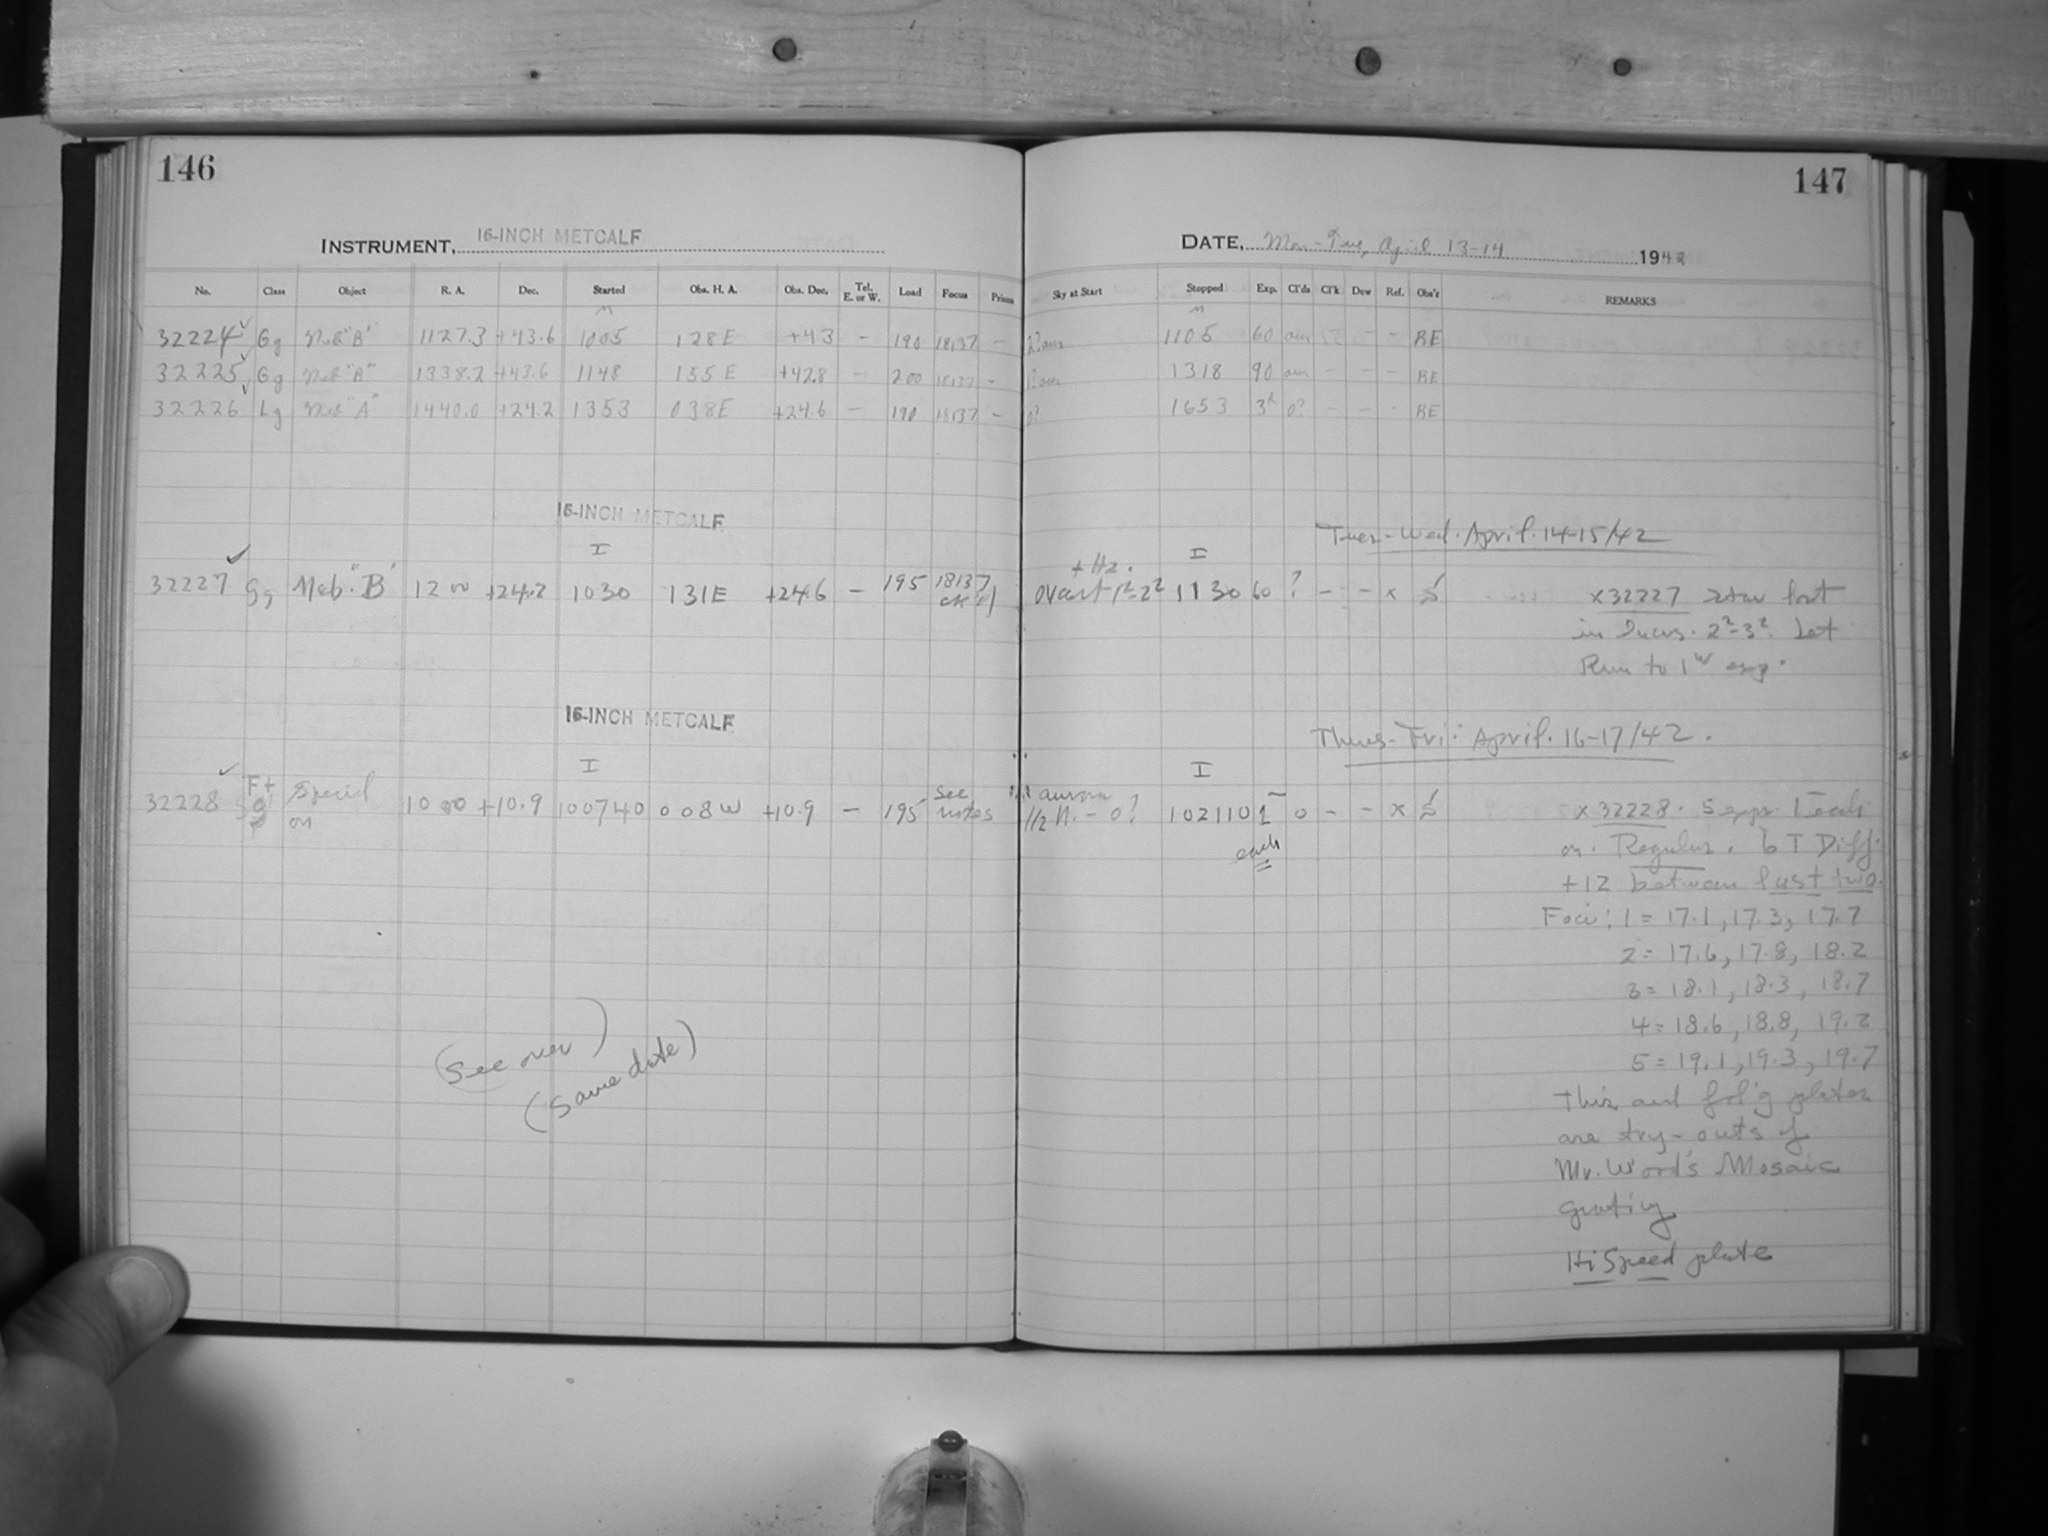 146
INSTRUMENT, 16-INCH METCALF
No. Class Object R. A. Dec. Started Obs. H. A. Obs. Dec. Tel. E. or W. Load Focus Prism
32224 Gg Neb "B" 1127.3 +43.6 1005 128E +43 - 190 18137 -
32225 Gg Neb "B" 1338.2 +43.6 1148 155E +42.8 - 200 18137 -
32226 Lg Neb "A" 1440.0 +24.2 1353 038E +24.6 - 190 18137 -
16-INCH METCALF
I
32227 Gg Neb. "B" 12 00 +24.2 1030 131E +24.6 - 195 18137
16-INCH METCALF
I
32228 F+ special on 10 00 +10.9 100740 008W +10.9 - 195 see notes
(see over)
(same date)
147
DATE, Mon-Tue, April 13-14 1942
Sky at Start Stopped Exp. Cl'ds Cl'k Dew Ref. Obs'r REMARKS
1105 60 aur - - BE
1318 90 aur - - - BE
0? 1653 3h 0? - - · BE
Tues-Wed. April. 14-15/42
+ Hz. I
ovcast 1130 60 ? - - x
x32227 star lost
in 2²-3². Let
Run to 1 exp.
Thurs-Fri: April. 16-17/42.
I
aurora
1/2 N. - 0? 102110 1 each 0 - - x
x 32228. 5 exps. 1 each
on. Regulus. bT Diff.
+12 between last two.
Foci: 1 = 17.1, 17.3, 17.7
2 = 17.6, 17.8, 18.2
3 = 18.1, 18.3, 18.7
4 = 18.6, 18.8, 19.2
5 = 19.1, 19.3, 19.7
This and fol'g plates
are try-outs of
Mr. Wood's Mosaic
grating
Hi Speed plate